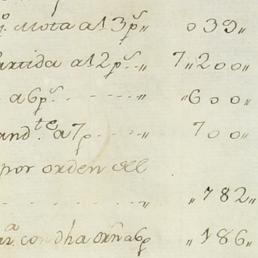 o. Mota al 3 p.s „ 039„
artida al 2 p.s „ 7„200„
a 6 p.s „ „600„
and.te a 7 p. „ 700„
por orden del
„ „782„
con dha orn a 6 p „186„